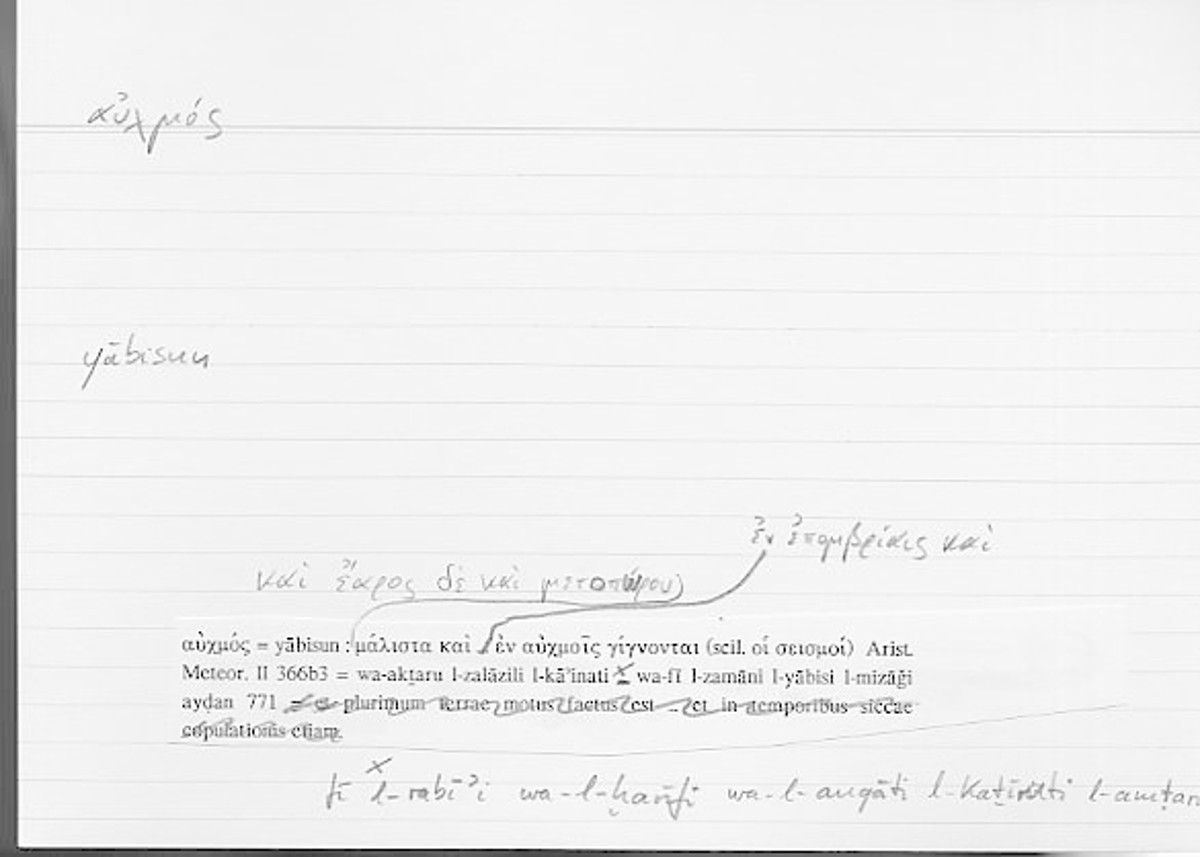 αὐχμός
yābisun
ἐν ἐπομβρίαις καὶ
καὶ ἔαρος δὲ καὶ μετοπώρου)
αὐχμός = yābisun : μάλιστα καὶ ἐν αὐχμοῖς γίγνονται (scil. οἱ σεισμοί) Arist.
Meteor. II 366b3 = wa-akṯaru l-zalāzili l-kāʾinati x wa-fī l-zamāni l-yābisi l-mizāǧi
aydan 771 = plurimum terrae motus factus est ... et in temporibus siccae
copulationis etiam.
x
fī l-rabīʾi wa-l-ḫarīfi wa-l-auqāti l-kaṯīrati l-amṭari